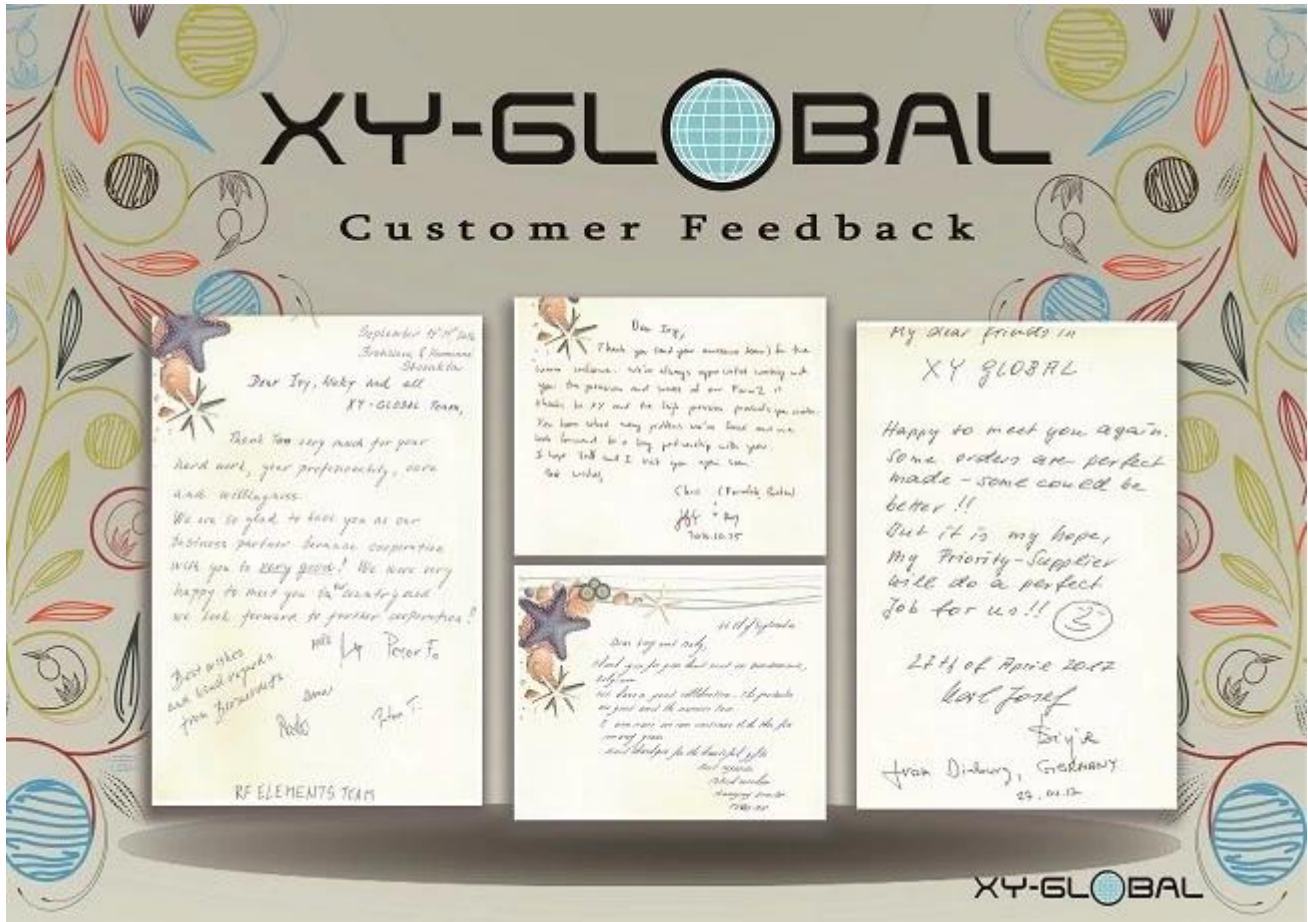 XY-GLOBAL
Customer Feedback
September
Slovakia
Dear Ivy, and all
XY-GLOBAL Team,
Thank You very much for your
hard work, your care
and willingness.
We are so glad to have you as our
business partner because cooperation
with you is very good! We were very
happy to meet you in country and
we look forward to further cooperation!
Peter
Best wishes
and kind regards
from
Peter T.
RF ELEMENTS TEAM
Dear Ivy,
Thank you (and your awesome team) for the
warm welcome. We've always appreciated working with
you. The precision and of our Form2 is
thanks to XY and the high precision products you make.
You have many problems we've faced and we
look forward to a long partnership with you.
I hope and I visit you again soon.
Best wishes,
Chris
of September
Dear Ivy and
Thank you for your
Belgium
We have a good collaboration. The products
are good and the service too.
we can continue like this for
many years
for the beautiful gifts
Best regards
My dear friends in
XY GLOBAL
Happy to meet you again.
Some orders are perfect
made - some could be
better!!
But it is my hope,
my Priority-Supplier
will do a perfect
Job for us!!
27th of April 2017
Karl Josef
from GERMANY
XY-GLOBAL